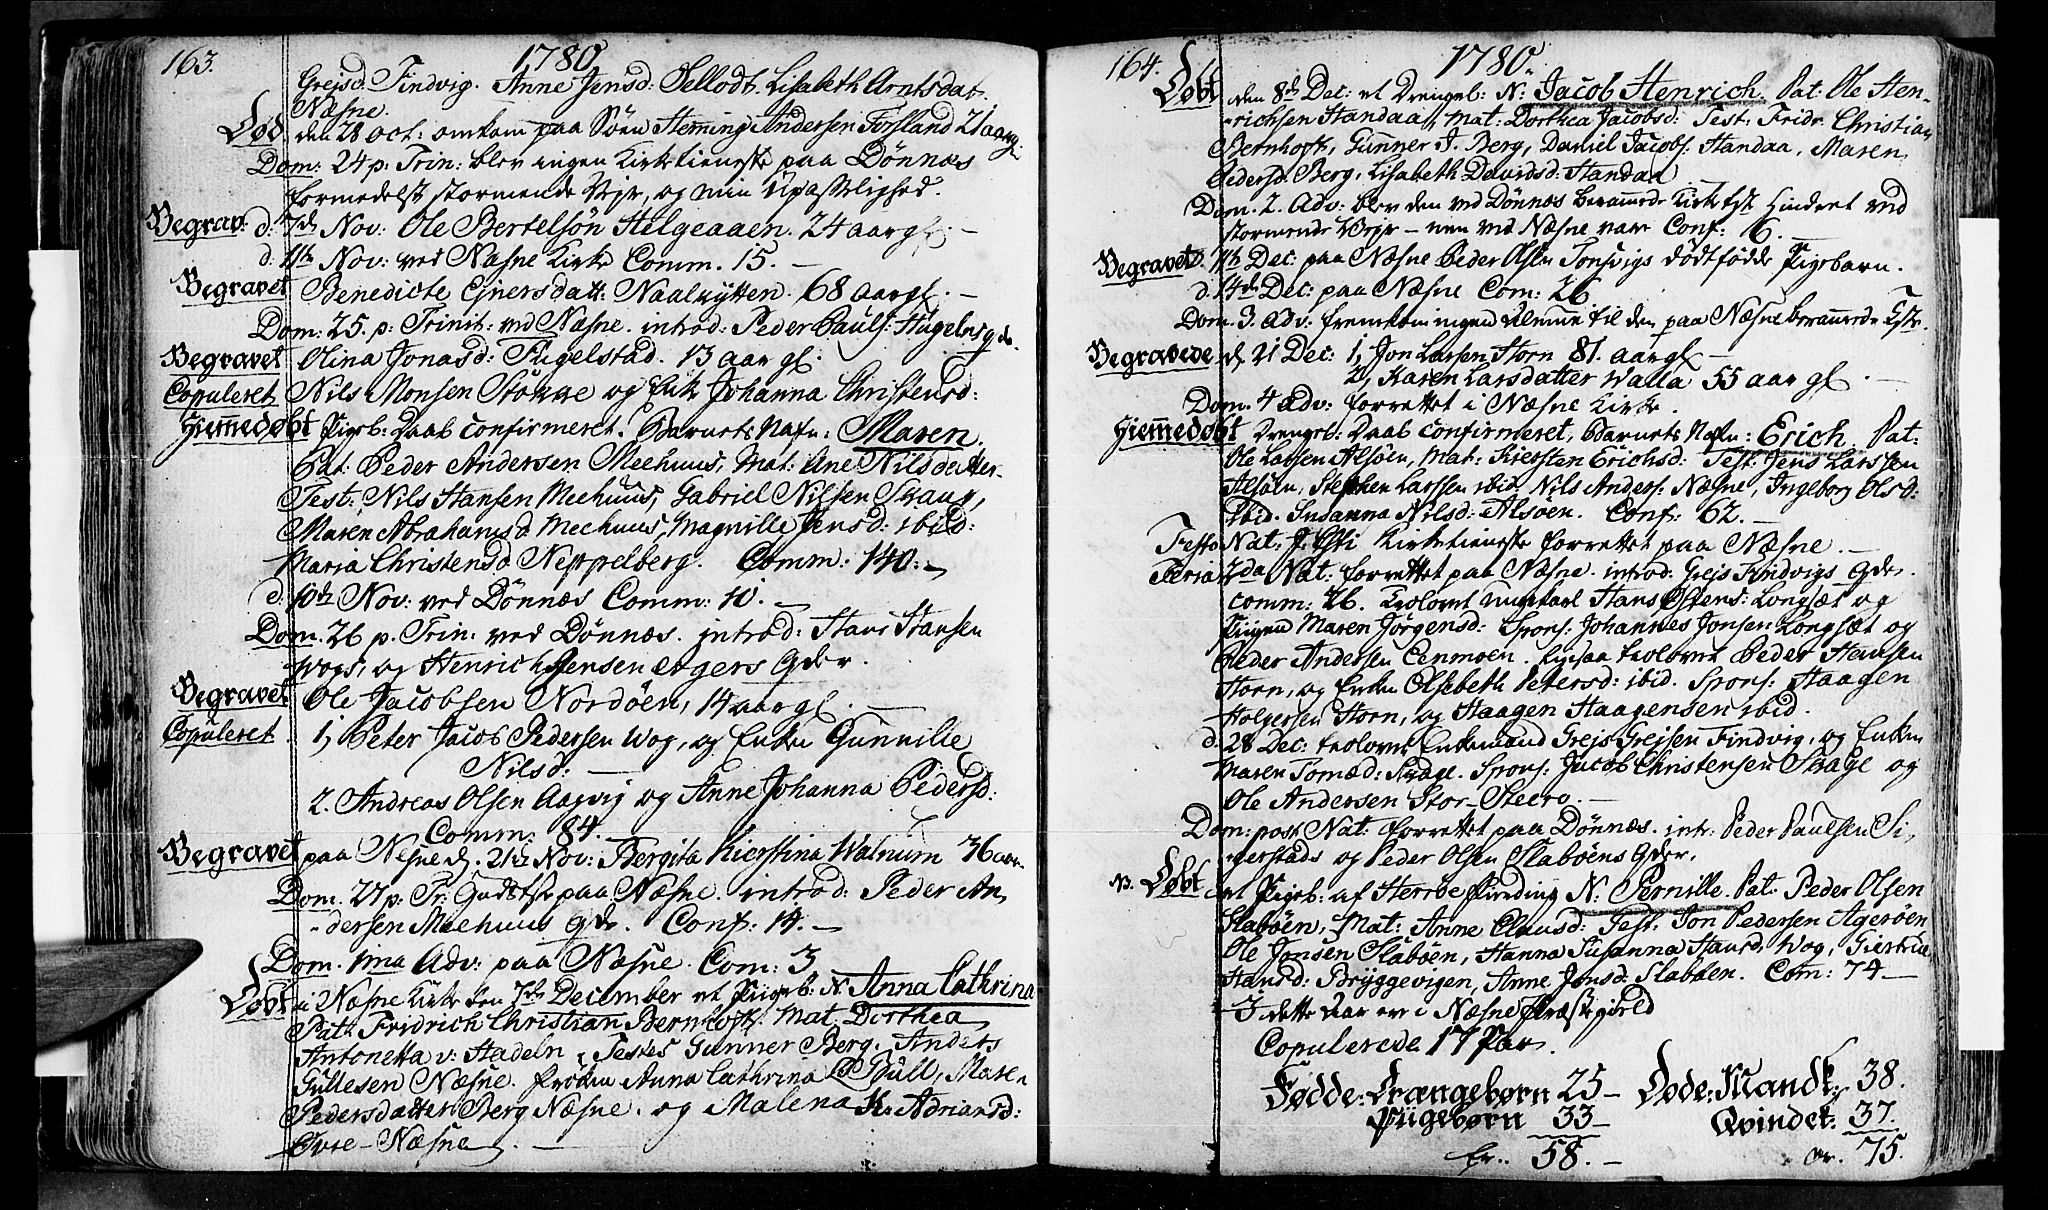 163. 1780.
Grejsd. Findvig. Anne Jensd: Sellodt. Lisabeth Arntsdat.
Næsne.
Død den 28 Oct: omkom paa Søen Hemming Andersen Forsland 21 aar gl.
Dom: 24 p: Trin: blev ingen Kirketieneste paa Dönnæs
formedelst stormende Vejr, og min Upasselighed.
Begrav: d: 7de Nov: Ole Bertelsön Helgeaaen. 24 aar gl. –
d. 11te Nov: ved Næsne Kirke Comm. 15. –
Begravet Benedicte Ejnersdatt: 68 aar gl. –
Dom: 25. p: Trinit: ved Næsne. introd: Peder Pauls:
Begravet Olina Jonasd: Fugelstad. 13 aar gl.
Copuleret Nils Monsen Stokke og Enke Johanna Christensd:
Hiemmedøbt Pigeb: Daab confirmeret. Barnets Nafn: Maren.
Pat: Peder Andersen Meehuus, Mat: Ane Nilsdatter
Test: Nils Hansen Meehuus, Gabriel Nilsen Skaug,
Maren Abrahamsd Meehuus, Magnille Jensd: ibid:
Maria Christensd Neppelberg. Comm: 140. –
d. 10de Nov: ved Dönnæs Comm: 10. –
Dom. 26 p. Trin: ved Dönnæs. introd: Hans Hansen
Wogs, og Henrich Jensen Qder.
Begravet Ole Jacobsen Nordöen, 14 aar gl. –
Copuleret 1, Peter Jacob Pedersen Wog, og Enke Gunnille
Nilsd: –
2. Andreas Olsen Aagvig og Anne Johanna Pedersd:
Comm: 84.
Begravet paa Nesne d. 21de Nov: Bergita Kierstina Walnum 36 aar.
Dom. 27 p: Tr: Gudstste paa Næsne. introd: Peder An
dersen Meehuus Qde. Conf: 14. –
Dom. 1ma Adv: paa Næsne. Com: 3
Døbt i Næsne Kirke den 7de December et Pigeb: N: Anna Cathrina
Pat: Fridrich Christian Bernhoft. Mat Dorthea
Antonetta v: Hadeln, Testes Gunner Berg. Anders
Gullesen Næsne. Frøken Anna Cathrina Bull, Maren
Pedersdatter Berg Næsne. og Malena Adriansd:
Øvre-Næsne. –
164. 1780.
Døbt den 8de Dec: et Drengeb: N: Jacob Henrich. Pat: Ole Hen-
richsen Handaa, Mat: Dorthea Jacobsd: Test: Fridr: Christian
Bernhoft, Gunner J. Berg, Daniel Jacobs: Handaa, Maren
Pedersd: Berg, Lisabeth Davidsd: Handaa
Dom. 2. Adv: blev den ved Dönnæs beramede Kirkefest hindret ved
stormende Vejr – men ved Næsne var Conf: 16. –
Begravet 11te Dec: paa Næsne Peder Olsen Tonsvigs dödfödde Pigebarn.
d. 14de Dec: paa Næsne Com: 26
Dom. 3. Adv: fremkom ingen Almue til den paa Næsne beramede
Begravede d 21 Dec: 1, Jon Larsen Horn 81. aar gl –
2, Karen Larsdatter Walla 55 aar gl. –
Dom. 4 Adv: forrettet i Næsne Kirke.
Hiemmedøbt Drengeb: Daab confirmeret, Barnets Nafn: Erich. Pat:
Ole Larsen Alsöen, Mat: Kiersten Erichsd: Test: Jens Larssen
Alsöen, Stephen Larssen ibid, Nils Anders: Næsne, Ingeborg Olsd:
ibid. Susanna Nilsd: Alsöen. Conf: 62. –
Festo Nat: J: Csti Kirketieneste forrettet paa Næsne. –
Feria 2da Nat: forrettet paa Næsne. introd: Grejs Findvigs Qde.
Comm: 26. trolovet ungkarl Hans Longsæt og
Pigen Maren Jörgensd: Spons: Johannes Jonsen Longsæt og
Peder Andersen Eenmoen. ligesaa trolovet Peder Hansen
Horn, og Enken Olsebeth Petersd: ibid. Spons: Haagen
Holgersen Horn, og Haagen Haagensen ibid.
d. 28 Dec: trolovet Enkemand Grejs Grejsen Findvig, og Enken
Maren Tomæd: Skage. Spons: Jacob Christensen Skage og
Ole Andersen Stor-Steero. –
Dom: post Nat: forrettet paa Dönnæs. intr: Peder Paulsen Si-
nerstads og Peder Olsen Slaböens Qder.
N. Døbt et Pigeb: af Herröe Pirding N: Pernille. Pat: Peder Olsen
Slaböen, Mat: Anne Clausd: Test: Jon Pedersen Ageröen
Ole Jonsen Slaböen, Hanna Susanna Hansd: Wog, Giertrud
Hansd: Bryggevigen, Anne Jonsd: Slaböen. Com: 74 –
I dette Aar er i Næsne Præstegield
Copulerede 17 Par.
Fødde: Drængebørn 25 – Døde: Mandk: 38.
Piigebørn 33 – Qvindek: 37.
er.. 58. – er. 75.